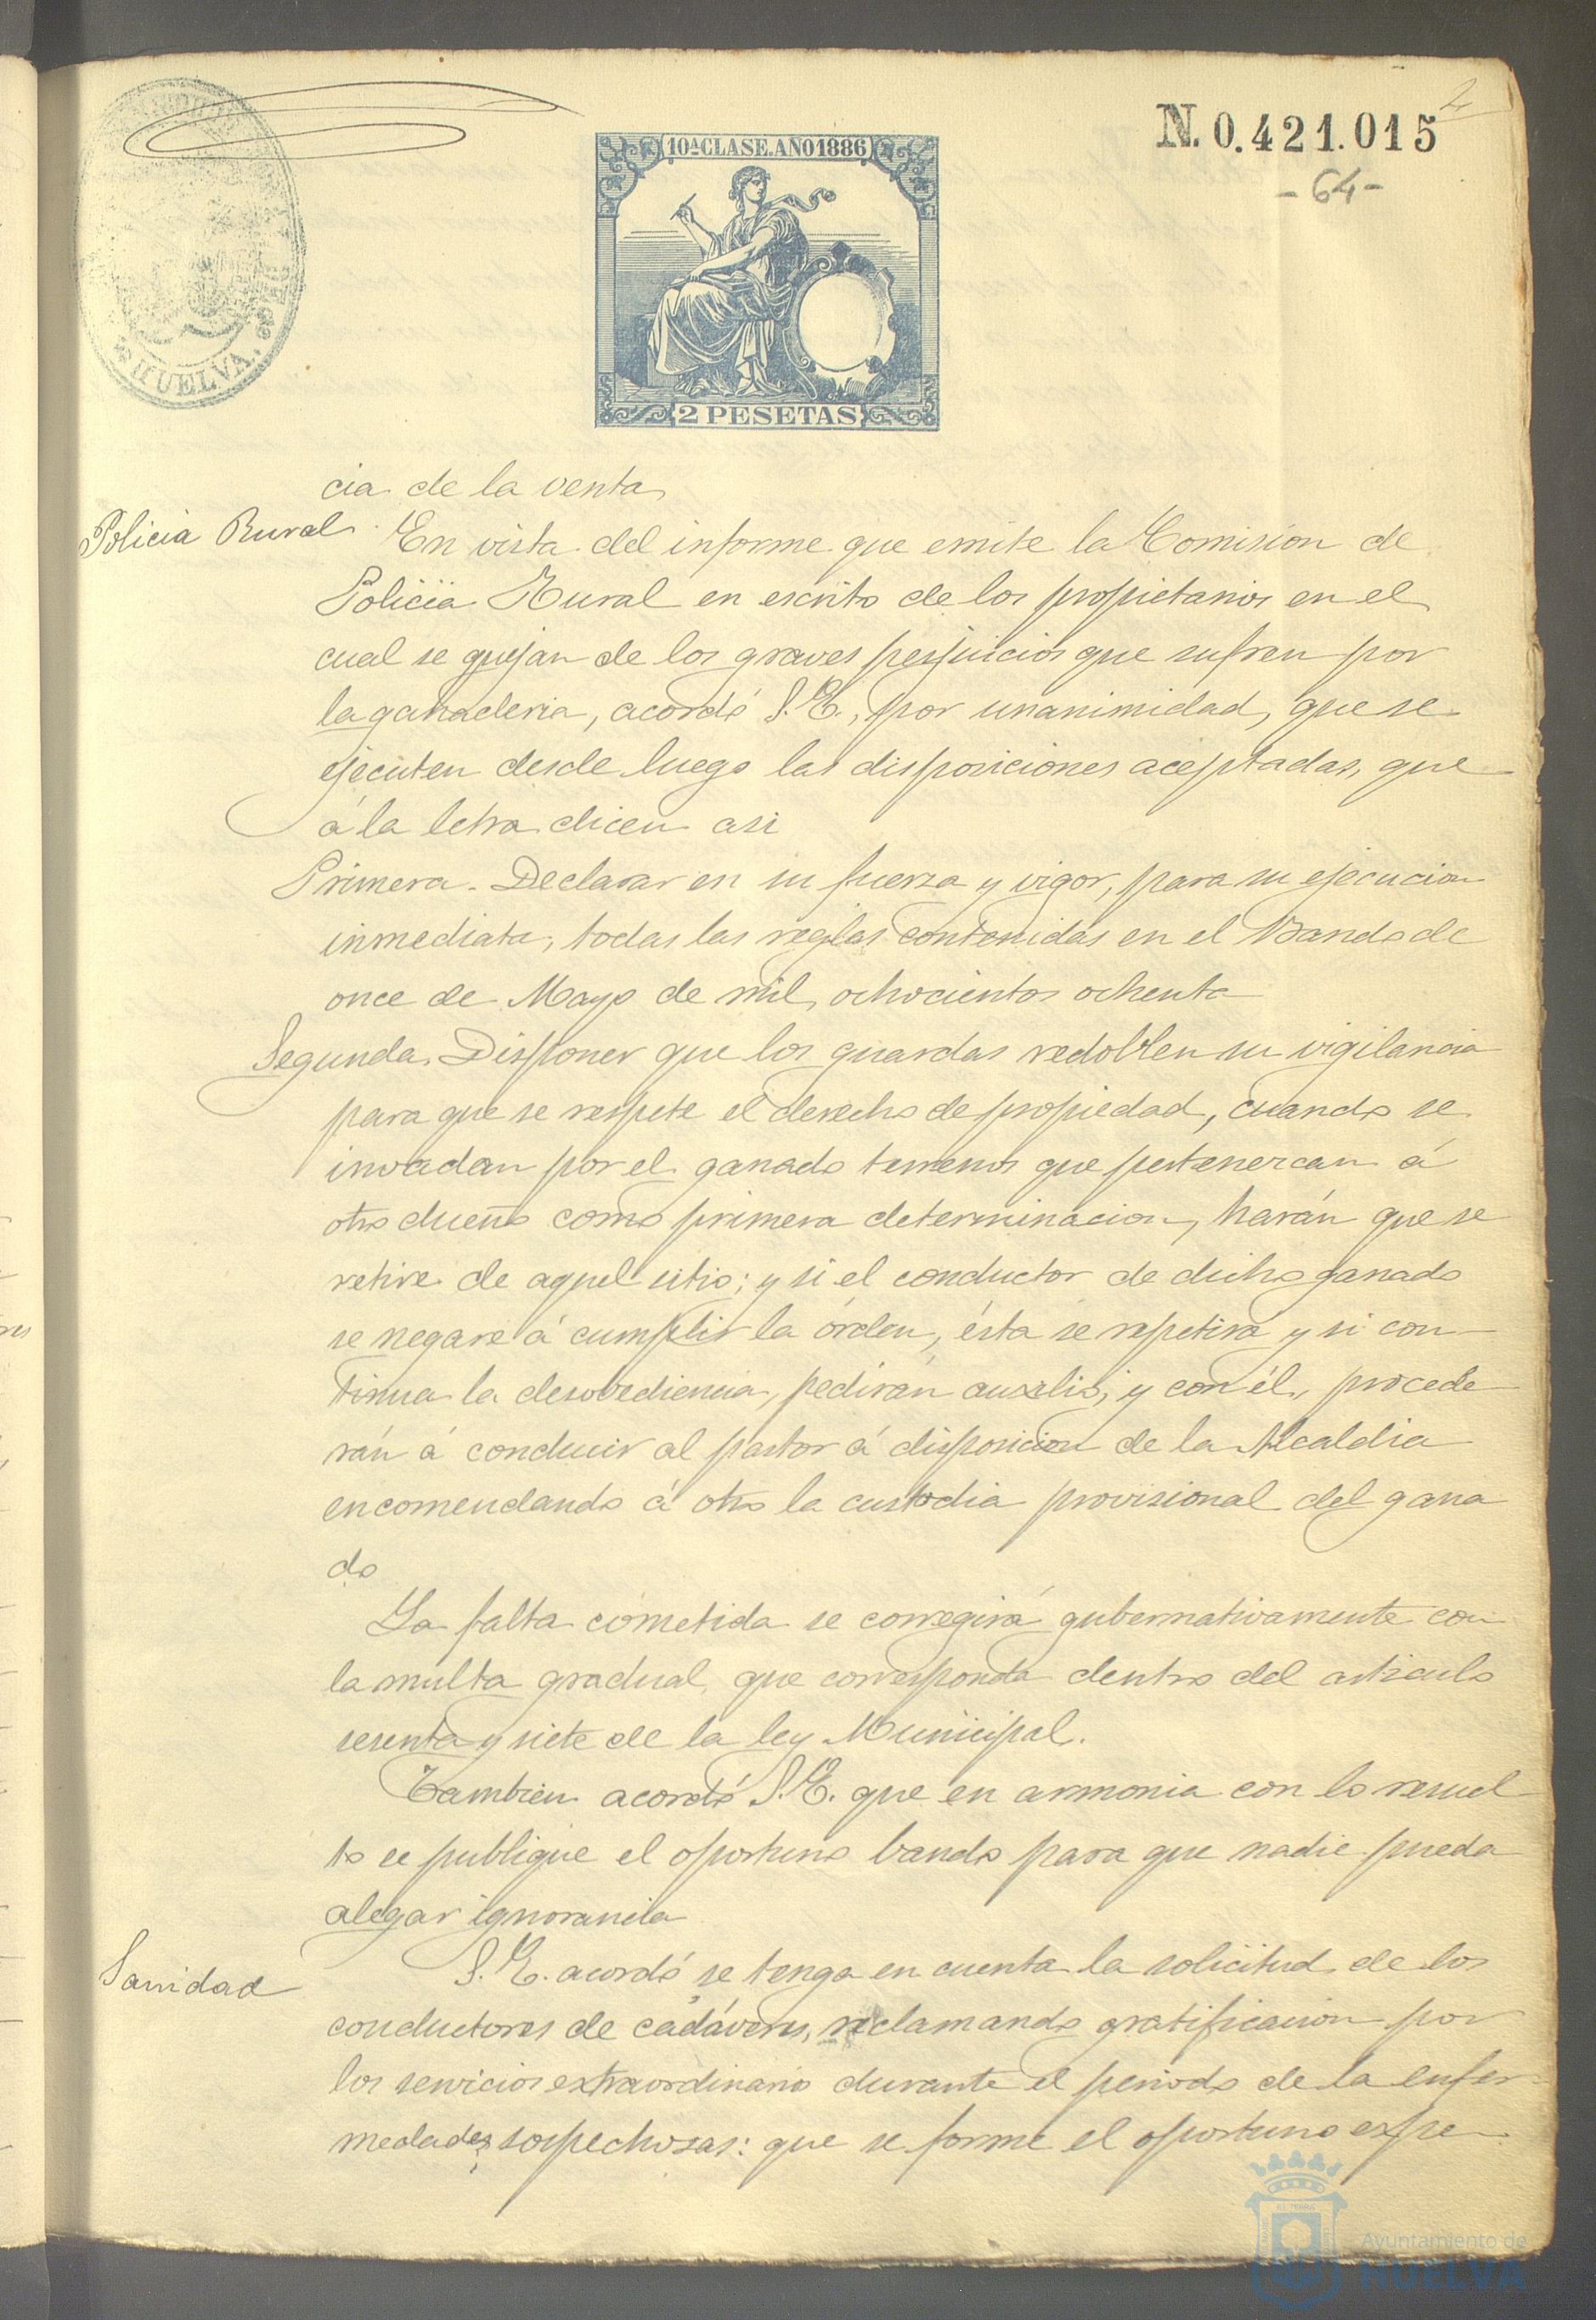 2
N. 0.421.015
-64-
10ª CLASE. AÑO 1886
2 PESETAS
HUELVA.
cia de la venta
Policia Rural
En vista del informe que emite la Comision de
Policia Rural en escrito de los propietarios en el
cual se quejan de los graves perjuicios que sufren por
la ganaderia, acordó S. E., por unanimidad, que se
ejecuten desde luego las disposiciones aceptadas, que
á la letra dicen asi
Primera. Declarar en su fuerza y vigor, para su ejecucion
inmediata, todas las reglas contenidas en el Bando de
once de Mayo de mil, ochocientos ochenta
Segunda. Disponer que los guardas redoblen su vigilancia
para que se respete el derecho de propiedad, cuando se
invadan por el ganado terrenos que pertenezcan á
otro dueño como primera determinacion, harán que se
retire de aquel sitio; y si el conductor de dicho ganado
se negare á cumplir la órden, ésta se repetira y si con-
tinua la desobediencia, pedirán auxilio; y con él, procede
rán á conducir al pastor á disposicion de la Alcaldia
encomendando á otro la custodia provisional del gana
do
La falta cometida se corregirá gubernativamente con
la multa gradual, que corresponda dentro del articulo
sesenta y siete de la ley Municipal.
Tambien acordó S. E. que en armonia con lo resuel
to se publique el oportuno bando para que nadie pueda
alegar ignorancia
Sanidad
S. E. acordó se tenga en cuenta la solicitud de los
conductores de cadáveres, reclamando gratificacion por
los servicios extraordinario durante el periodo de la enfer-
medades sospechosas: que se forme el oportuno expe
Ayuntamiento de
HUELVA